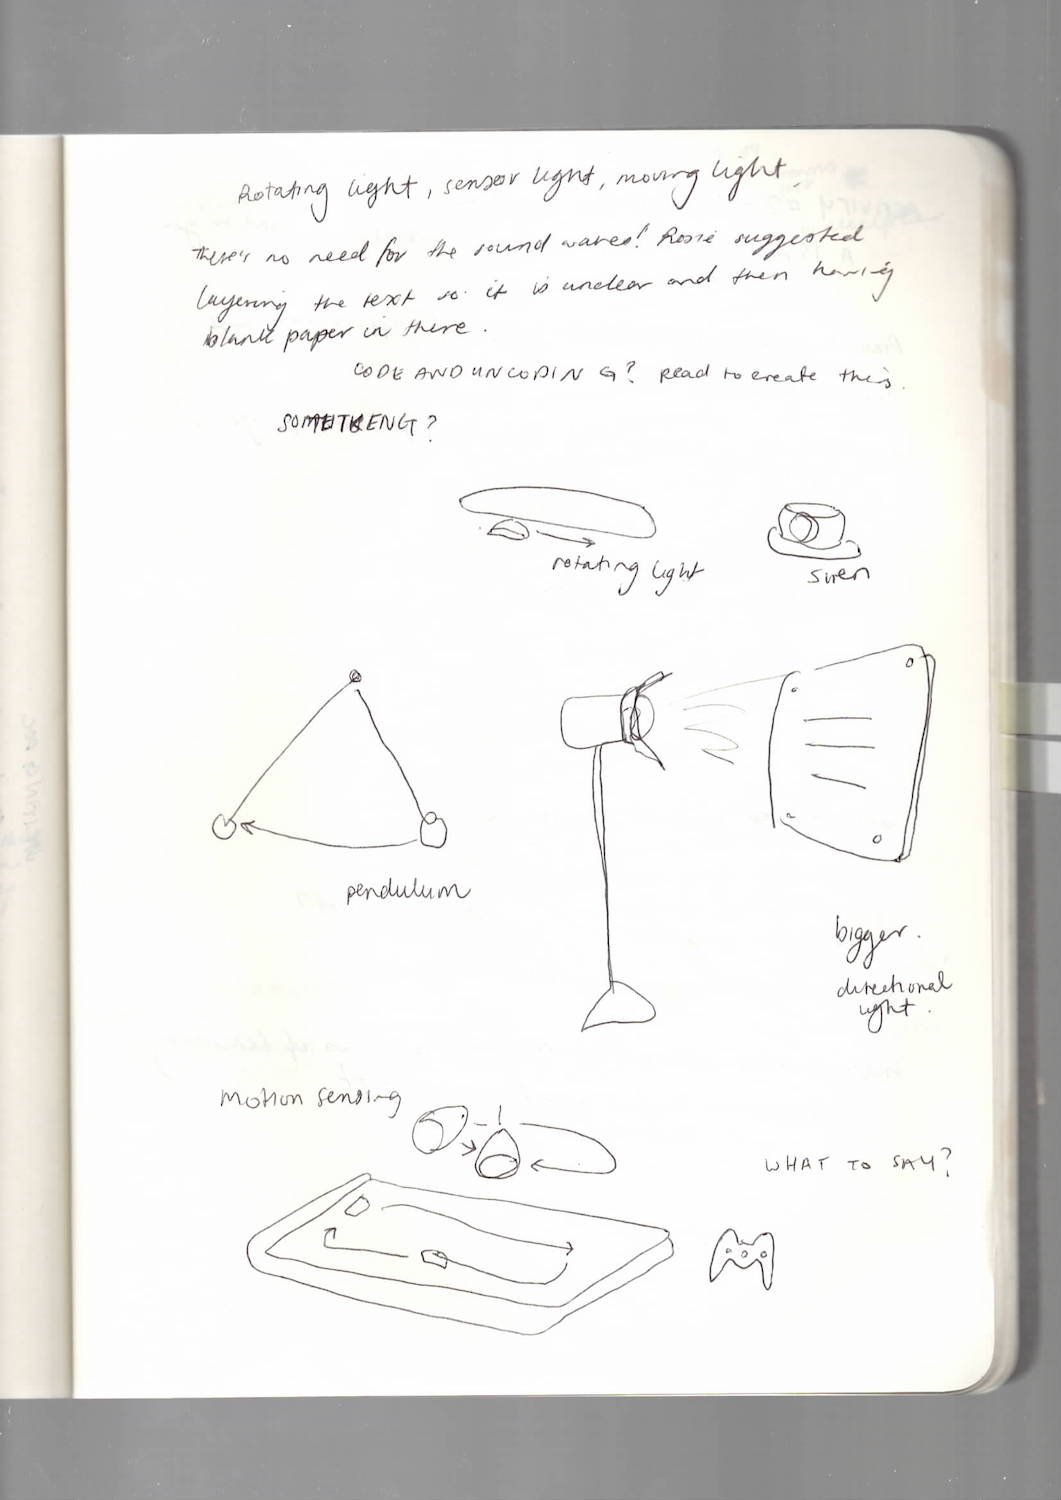 Rotating light, sensor light, moving light.
There's no need for the sound waves! Rosie suggested
layering the text so it is unclear and then having
blank paper in there.
CODE AND UNCODING? Read to create this.
?
rotating light
siren
pendulum
bigger.
directional
light.
Motion sensing
WHAT TO SAY?